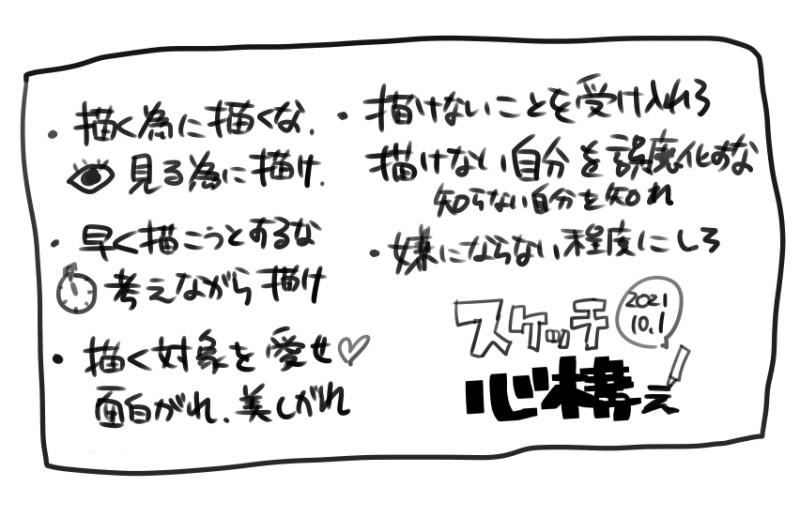 ・描く為に描くな.
見る為に描け.
・早く描こうとするな
考えながら描け
・描く対象を愛せ♡
面白がれ.美しがれ
・描けないことを受け入れろ
描けない自分を誤魔化すな
知らない自分を知れ
・嫌にならない程度にしろ
スケッチ
心構え
2021
10.1